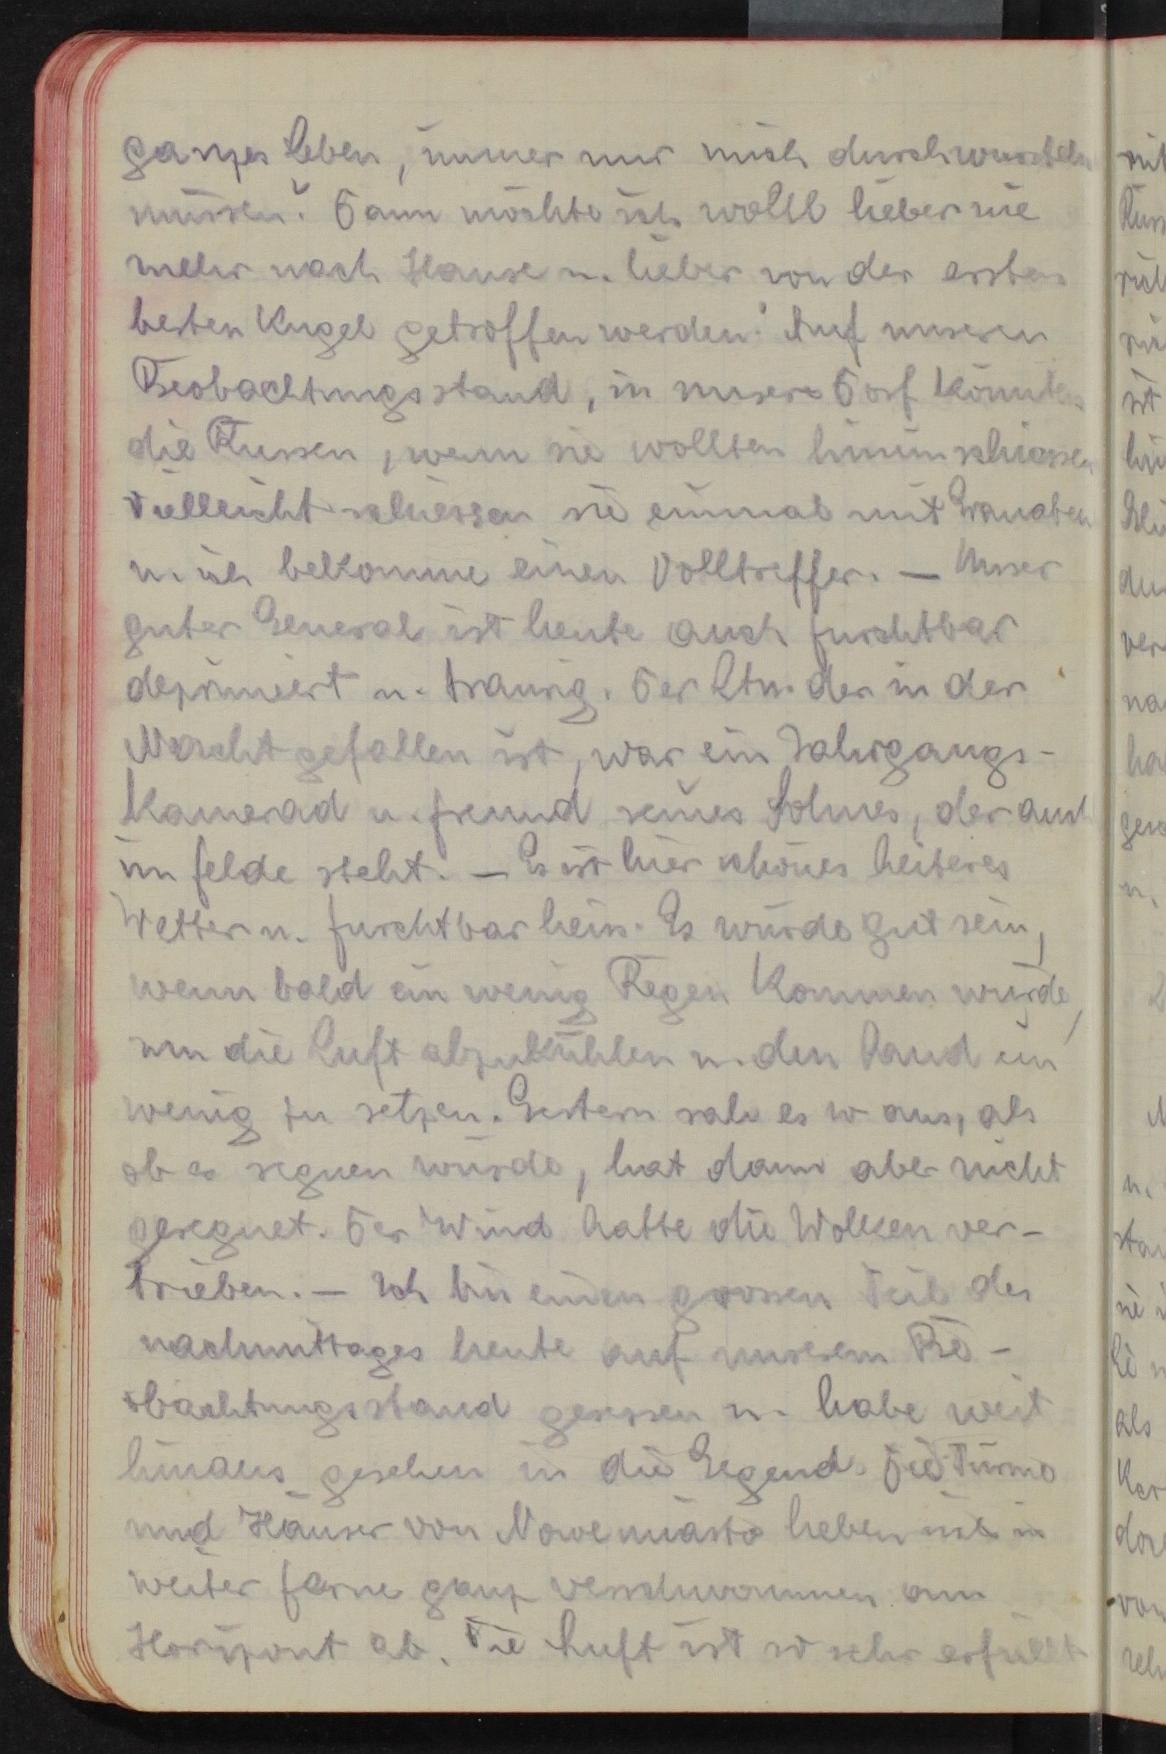 ganzes Leben, immer nur mich durchwursteln
müssen? Dann möchte ich wohl lieber nie
mehr nach Hause u. lieber von der ersten
besten Kugel getroffen werden! Auf unseren
Beobachtungsstand, in unser Dorf könnten
die Russen, wenn sie wollten hineinschiessen
Vielleicht schiessen sie einmal mit Granaten
u. ich bekomme einen Volltreffer. — Unser
guter General ist heute auch furchtbar
deprimiert u. traurig. Der Ltn. der in der
Nacht gefallen ist, war ein Jahrgangs-
kamerad u. Freund seines Sohnes, der auch
im Felde steht. — Es ist hier schönes heiteres
Wetter u. furchtbar heiss. Es würde gut sein,
wenn bald ein wenig Regen kommen würde,
um die Luft abzukühlen u. den Sand ein
wenig zu setzen. Gestern sah es so aus, als
ob es regnen würde, hat dann aber nicht
geregnet. Der Wind hatte die Wolken ver-
trieben. — Ich bin einen grossen Teil des
nachmittages heute auf unserem Be-
obachtungsstand gesessen u. habe weit
hinaus gesehen in die Gegend. Die Türme
und Häuser von Nowemiasto heben sich in
weiter Ferne ganz verschwommen am
Horizont ab. Die Luft ist so sehr erfüllt